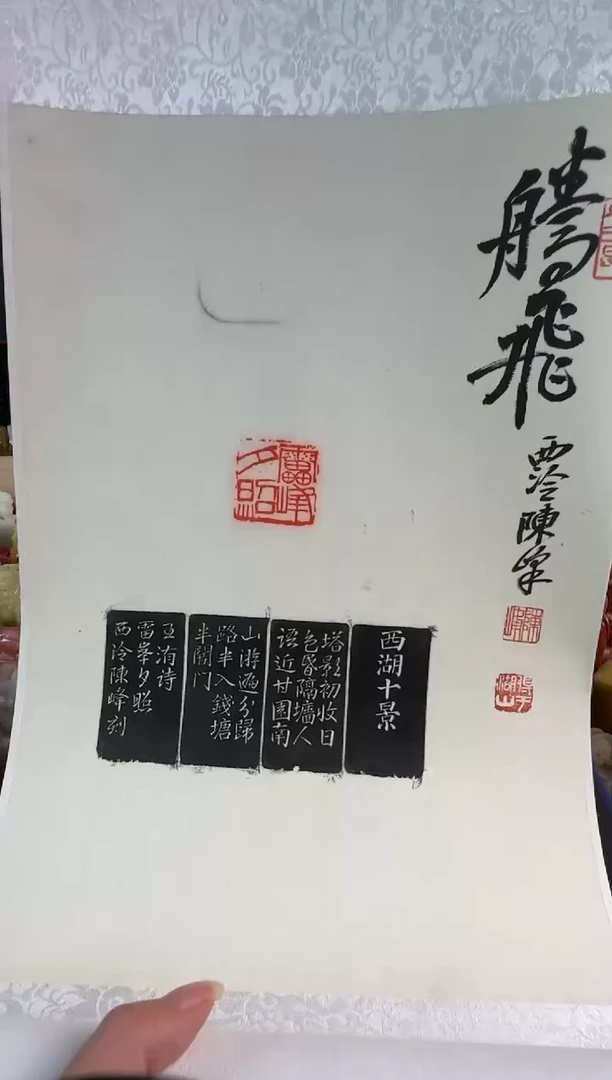 騰飛
西泠陳峯
雷峰
夕照
西湖十景
塔影初收日
色昏隔墻人
語近甘園南
山游遍分歸
路半入錢塘
半闇門
王洧詩
雷峯夕照
西泠陳峰刻